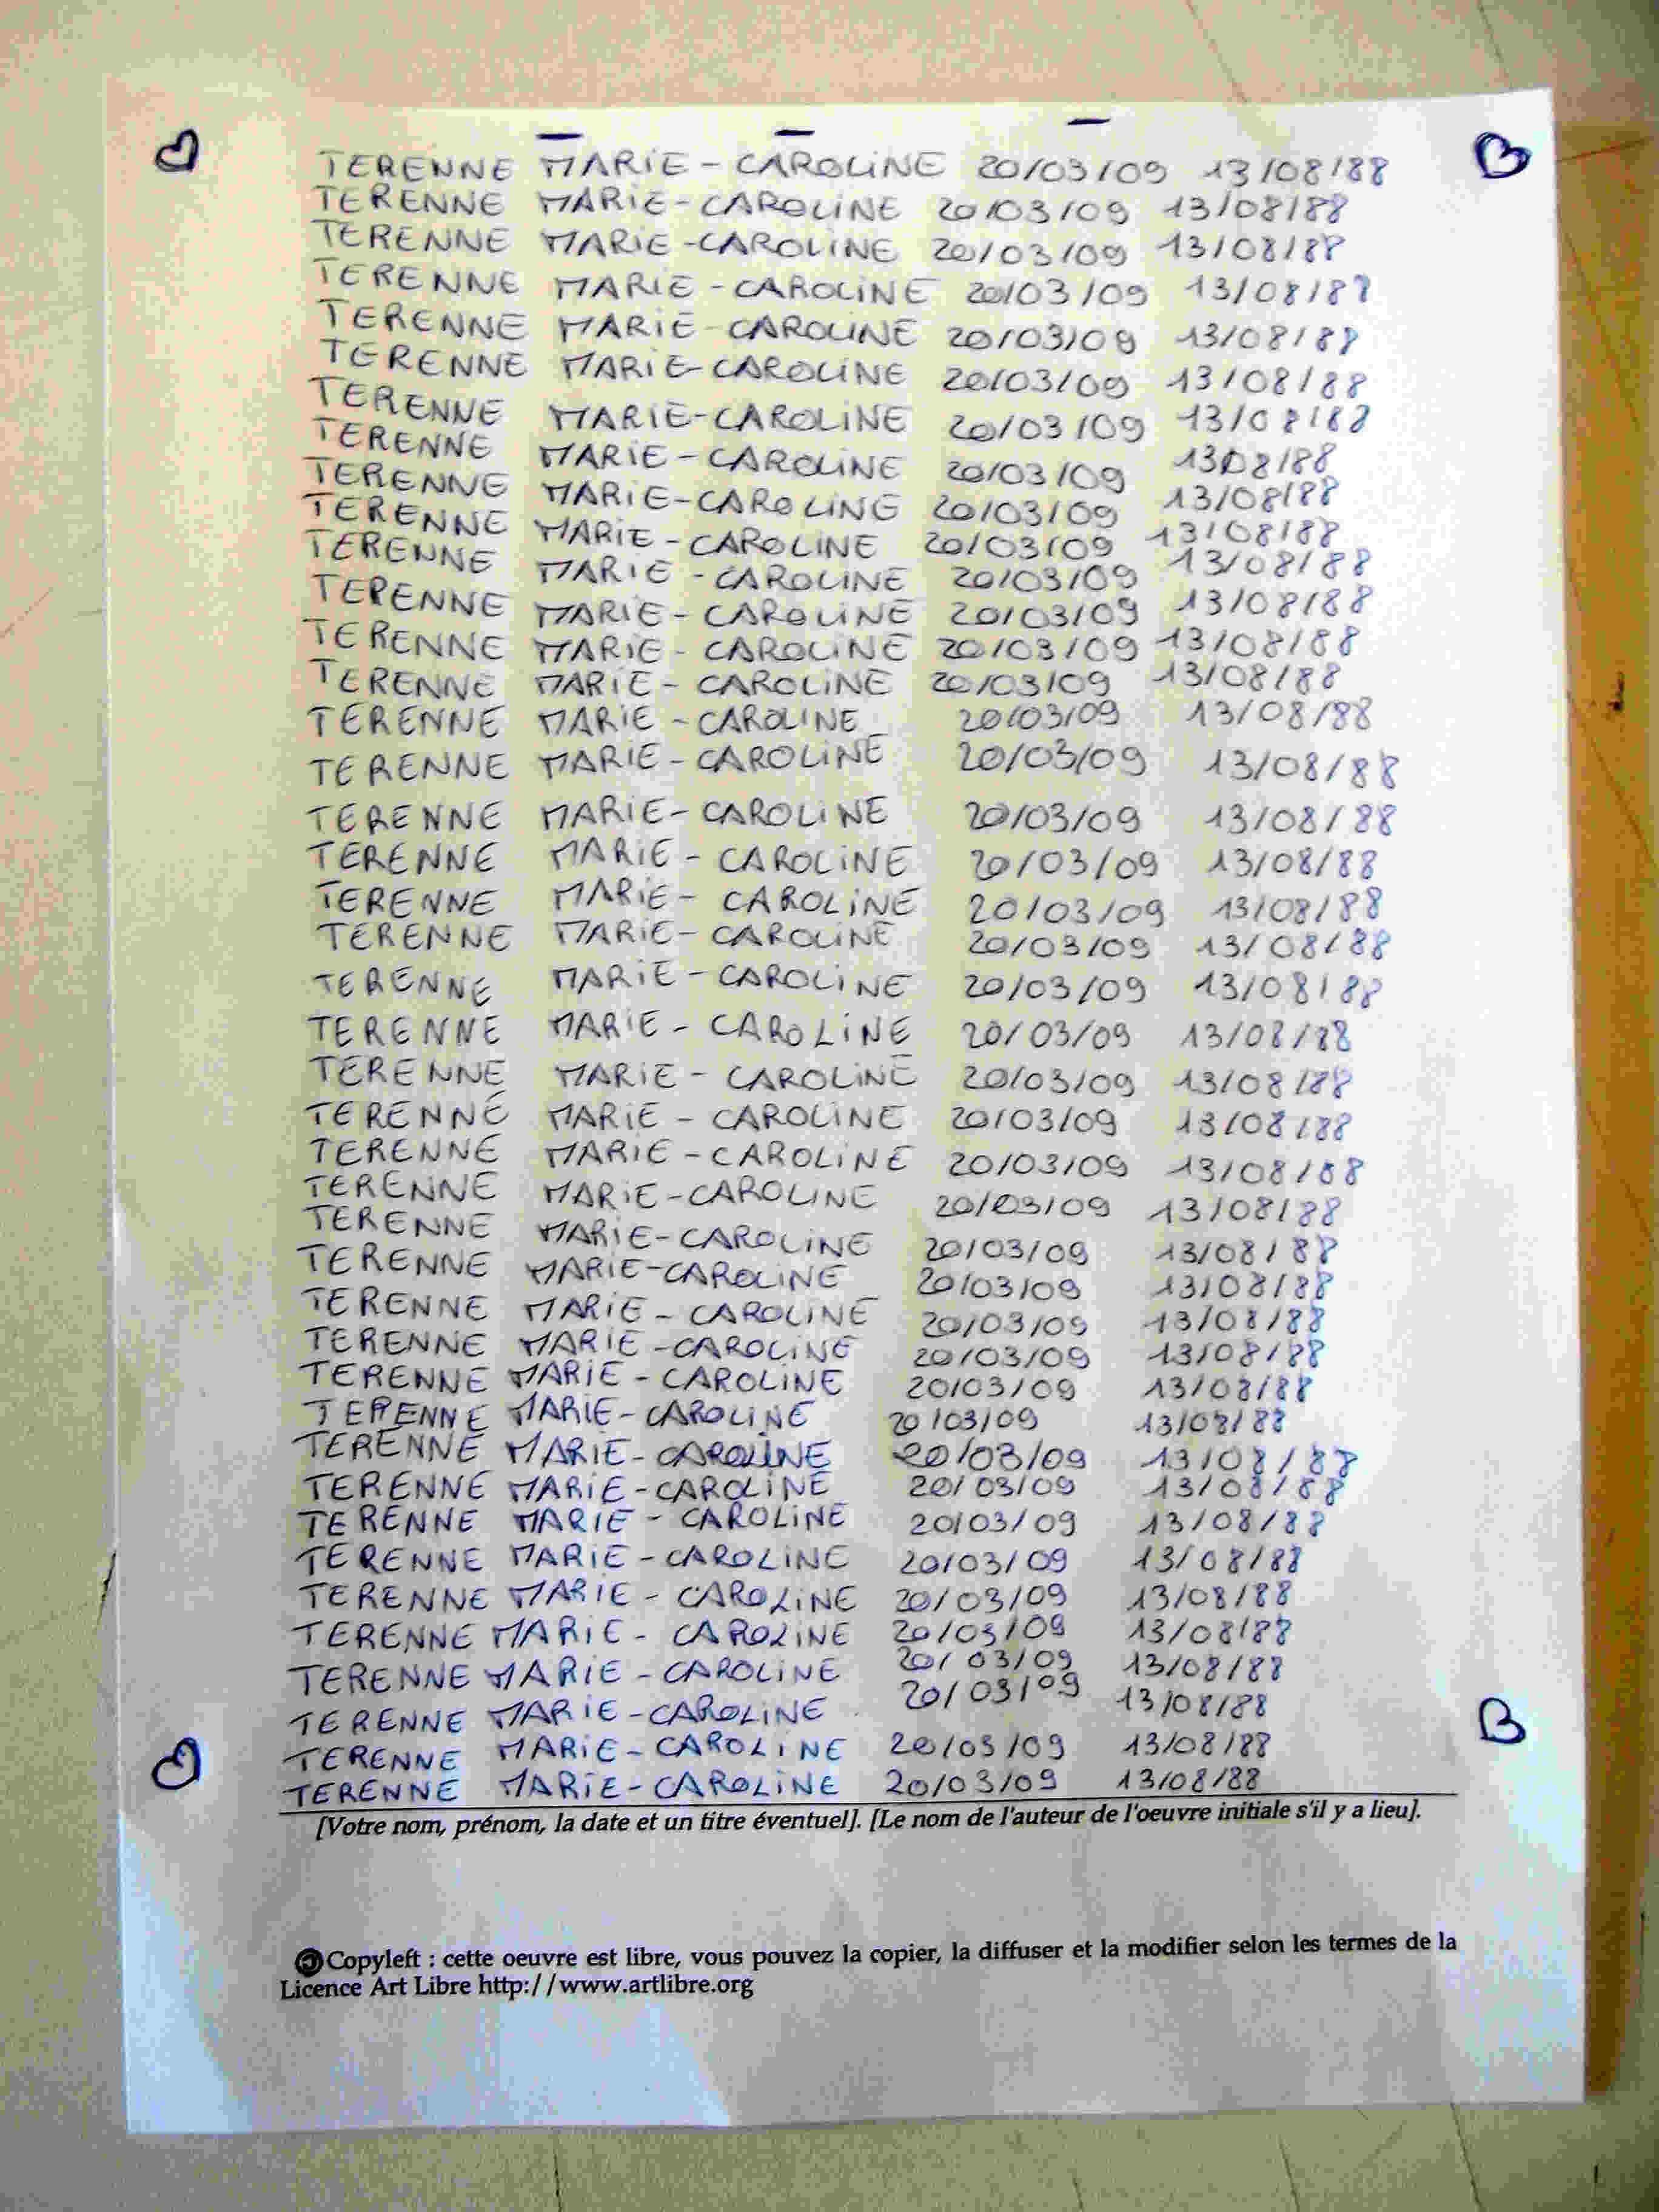 TERENNE MARIE - CAROLINE 20/03/09 13/08/88
TERENNE MARIE - CAROLINE 20/03/09 13/08/88
TERENNE MARIE - CAROLINE 20/03/09 13/08/88
TERENNE MARIE - CAROLINE 20/03/09 13/08/88
TERENNE MARIE - CAROLINE 20/03/09 13/08/88
TERENNE MARIE - CAROLINE 20/03/09 13/08/88
TERENNE MARIE - CAROLINE 20/03/09 13/08/88
TERENNE MARIE - CAROLINE 20/03/09 13/08/88
TERENNE MARIE - CAROLINE 20/03/09 13/08/88
TERENNE MARIE - CAROLINE 20/03/09 13/08/88
TERENNE MARIE - CAROLINE 20/03/09 13/08/88
TERENNE MARIE - CAROLINE 20/03/09 13/08/88
TERENNE MARIE - CAROLINE 20/03/09 13/08/88
TERENNE MARIE - CAROLINE 20/03/09 13/08/88
TERENNE MARIE - CAROLINE 20/03/09 13/08/88
TERENNE MARIE - CAROLINE 20/03/09 13/08/88
TERENNE MARIE - CAROLINE 20/03/09 13/08/88
TERENNE MARIE - CAROLINE 20/03/09 13/08/88
TERENNE MARIE - CAROLINE 20/03/09 13/08/88
TERENNE MARIE - CAROLINE 20/03/09 13/08/88
TERENNE MARIE - CAROLINE 20/03/09 13/08/88
TERENNE MARIE - CAROLINE 20/03/09 13/08/88
TERENNE MARIE - CAROLINE 20/03/09 13/08/88
TERENNE MARIE - CAROLINE 20/03/09 13/08/88
TERENNE MARIE - CAROLINE 20/03/09 13/08/88
TERENNE MARIE - CAROLINE 20/03/09 13/08/88
TERENNE MARIE - CAROLINE 20/03/09 13/08/88
TERENNE MARIE - CAROLINE 20/03/09 13/08/88
TERENNE MARIE - CAROLINE 20/03/09 13/08/88
TERENNE MARIE - CAROLINE 20/03/09 13/08/88
TERENNE MARIE - CAROLINE 20/03/09 13/08/88
TERENNE MARIE - CAROLINE 20/03/09 13/08/88
TERENNE MARIE - CAROLINE 20/03/09 13/08/88
TERENNE MARIE - CAROLINE 20/03/09 13/08/88
TERENNE MARIE - CAROLINE 20/03/09 13/08/88
TERENNE MARIE - CAROLINE 20/03/09 13/08/88
TERENNE MARIE - CAROLINE 20/03/09 13/08/88
TERENNE MARIE - CAROLINE 20/03/09 13/08/88
TERENNE MARIE - CAROLINE 20/03/09 13/08/88
TERENNE MARIE - CAROLINE 20/03/09 13/08/88
TERENNE MARIE - CAROLINE 20/03/09 13/08/88
TERENNE MARIE - CAROLINE 20/03/09 13/08/88
[Votre nom, prénom, la date et un titre éventuel]. [Le nom de l'auteur de l'oeuvre initiale s'il y a lieu].
Copyleft : cette oeuvre est libre, vous pouvez la copier, la diffuser et la modifier selon les termes de la
Licence Art Libre http://www.artlibre.org